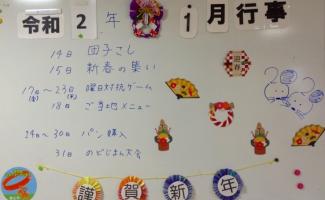 令和2年1月行事
14日 団子さし
15日 新春の集い
17日～23日 曜日対抗ゲーム
(金) (木)
18日 ご当地メニュー
24日～30日 パン購入
31日 のどじまん大会
謹賀新年